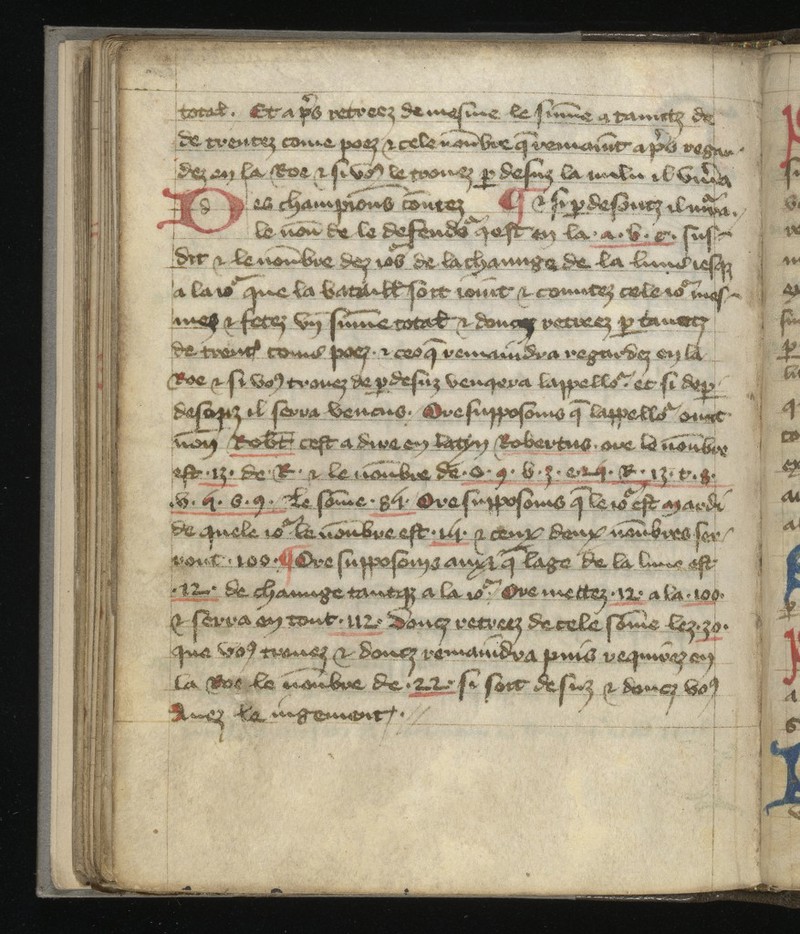 total. Et ap̄s retreez de mesme le sūme a tauntz de
de trentez come poez ⁊ cele noūbre q̄ remaint ap̄s regar-
dez en la Roe ⁊ si voꝰ le trouez ꝑ desuz la il viu͛a
Des champions contez ¶ ⁊ si ꝑ desoutz il mꝛa.
le noū de le defendoᵃ qest en la .a.b.c. sus-
dit ⁊ le noūbre dez ioᵃs de la chaunge de la lune iesqz
a la ioᵃ que la bataill sort ioint ⁊ countez cele ioᵃ mes-
mes ⁊ fetez vn sūme total ⁊ doncqz retreez ꝑ tauntz
de trent come poez . ⁊ ceo q̄ remaindra regardez en la
Roe ⁊ si voꝰ trouez de ꝑ desuz venqera lappelloᵃ . et si de ꝑ
desoutz il serra vencus . Ore supposoms q̄ lappelloᵃ out
noū Rob̄t cest a dire en latyn Robertus . ore le noūbre
est .13. de R . ⁊ le noūbre de . o . 9 . b . 3 . e . 24 . R . 13 . t . 8 .
.v . 4 . s . 9 . Le sōme . 84 . Ore supposoms q̄ le ioᵃ est mardi
de quele ioᵃ le noūbre est . 14 . ⁊ ceux deux noūbres ser-
ront . 100 . ¶ Ore supposoms auxi q̄ lage de la lune est
. 12 . de chaunge tantqz a la ioᵃ . Ore mettez . 12 . a la . 100 .
⁊ serra en tout . 112 . Doncz retreez de cele sōme lez . 30 .
que voꝰ trouez ⁊ doncz remaindra puis requirez en
la Roe le noūbre de . 22 . si sort desuz ⁊ doncz voꝰ
Auez le iugement .